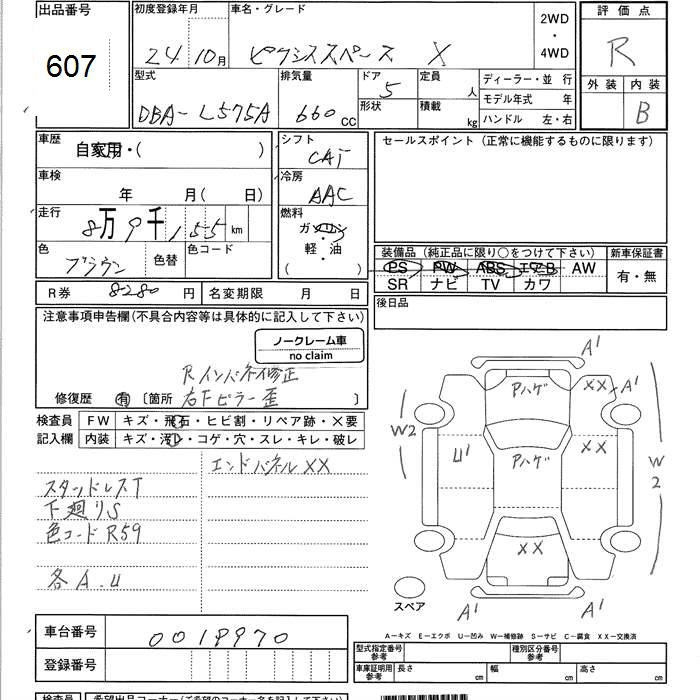 出品番号
607
初度登録年月
24 10月
車名・グレード
ピクシススペース X
2WD
・
4WD
評価点
R
外装 内装
B
型式
DBA-L575A
排気量
660 cc
ドア
5
形状
定員
人
積載
kg
ディーラー・並 行
モデル年式 年
ハンドル 左・右
車歴
自家用・( )
車検
年 月( 日)
走行
8万9千155 km
色
ブラウン
色替
色コード
シフト
CAT
冷房
AAC
燃料
ガソリン
軽・油
( )
セールスポイント(正常に機能するものに限ります)
装備品(純正品に限り○をつけて下さい)
PS PW ABS エアB AW
SR ナビ TV カワ
新車保証書
有・無
後日品
R券 8280 円
名変期限 月 日
注意事項申告欄(不具合内容等は具体的に記入して下さい)
ノークレーム車
no claim
Rインパネ修正
修復歴 有 〔箇所 右Fピラー歪
検査員
記入欄
FW キズ・飛石・ヒビ割・リペア跡・×要
内装 キズ・汚レ・コゲ・穴・スレ・キレ・破レ
エンドパネルXX
スタッドレスT
下廻りS
色コードR59
各A.U
A'
Pハゲ
XX
A'
W2
U'
Pハゲ
XX
W2
XX
スペア
A'
A'
A-キズ E-エクボ U-凹み W-補修跡 S-サビ C-腐食 XX-交換済
車台番号
0018970
登録番号
型式指定番号
参考
種別区分番号
参考
車庫証明用
参考
長さ cm 幅 cm 高さ cm
検査員
希望出品コーナー(ご希望のコーナー名を記入して下さい)